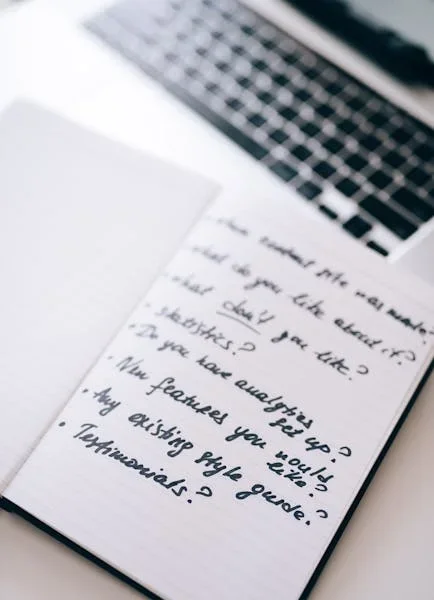 current site was made?
what do you like about it?
what don't you like?
• statistics?
• Do you have analytics
set up?
• New features you would
like?
• Any existing style guide?
• Testimonials?